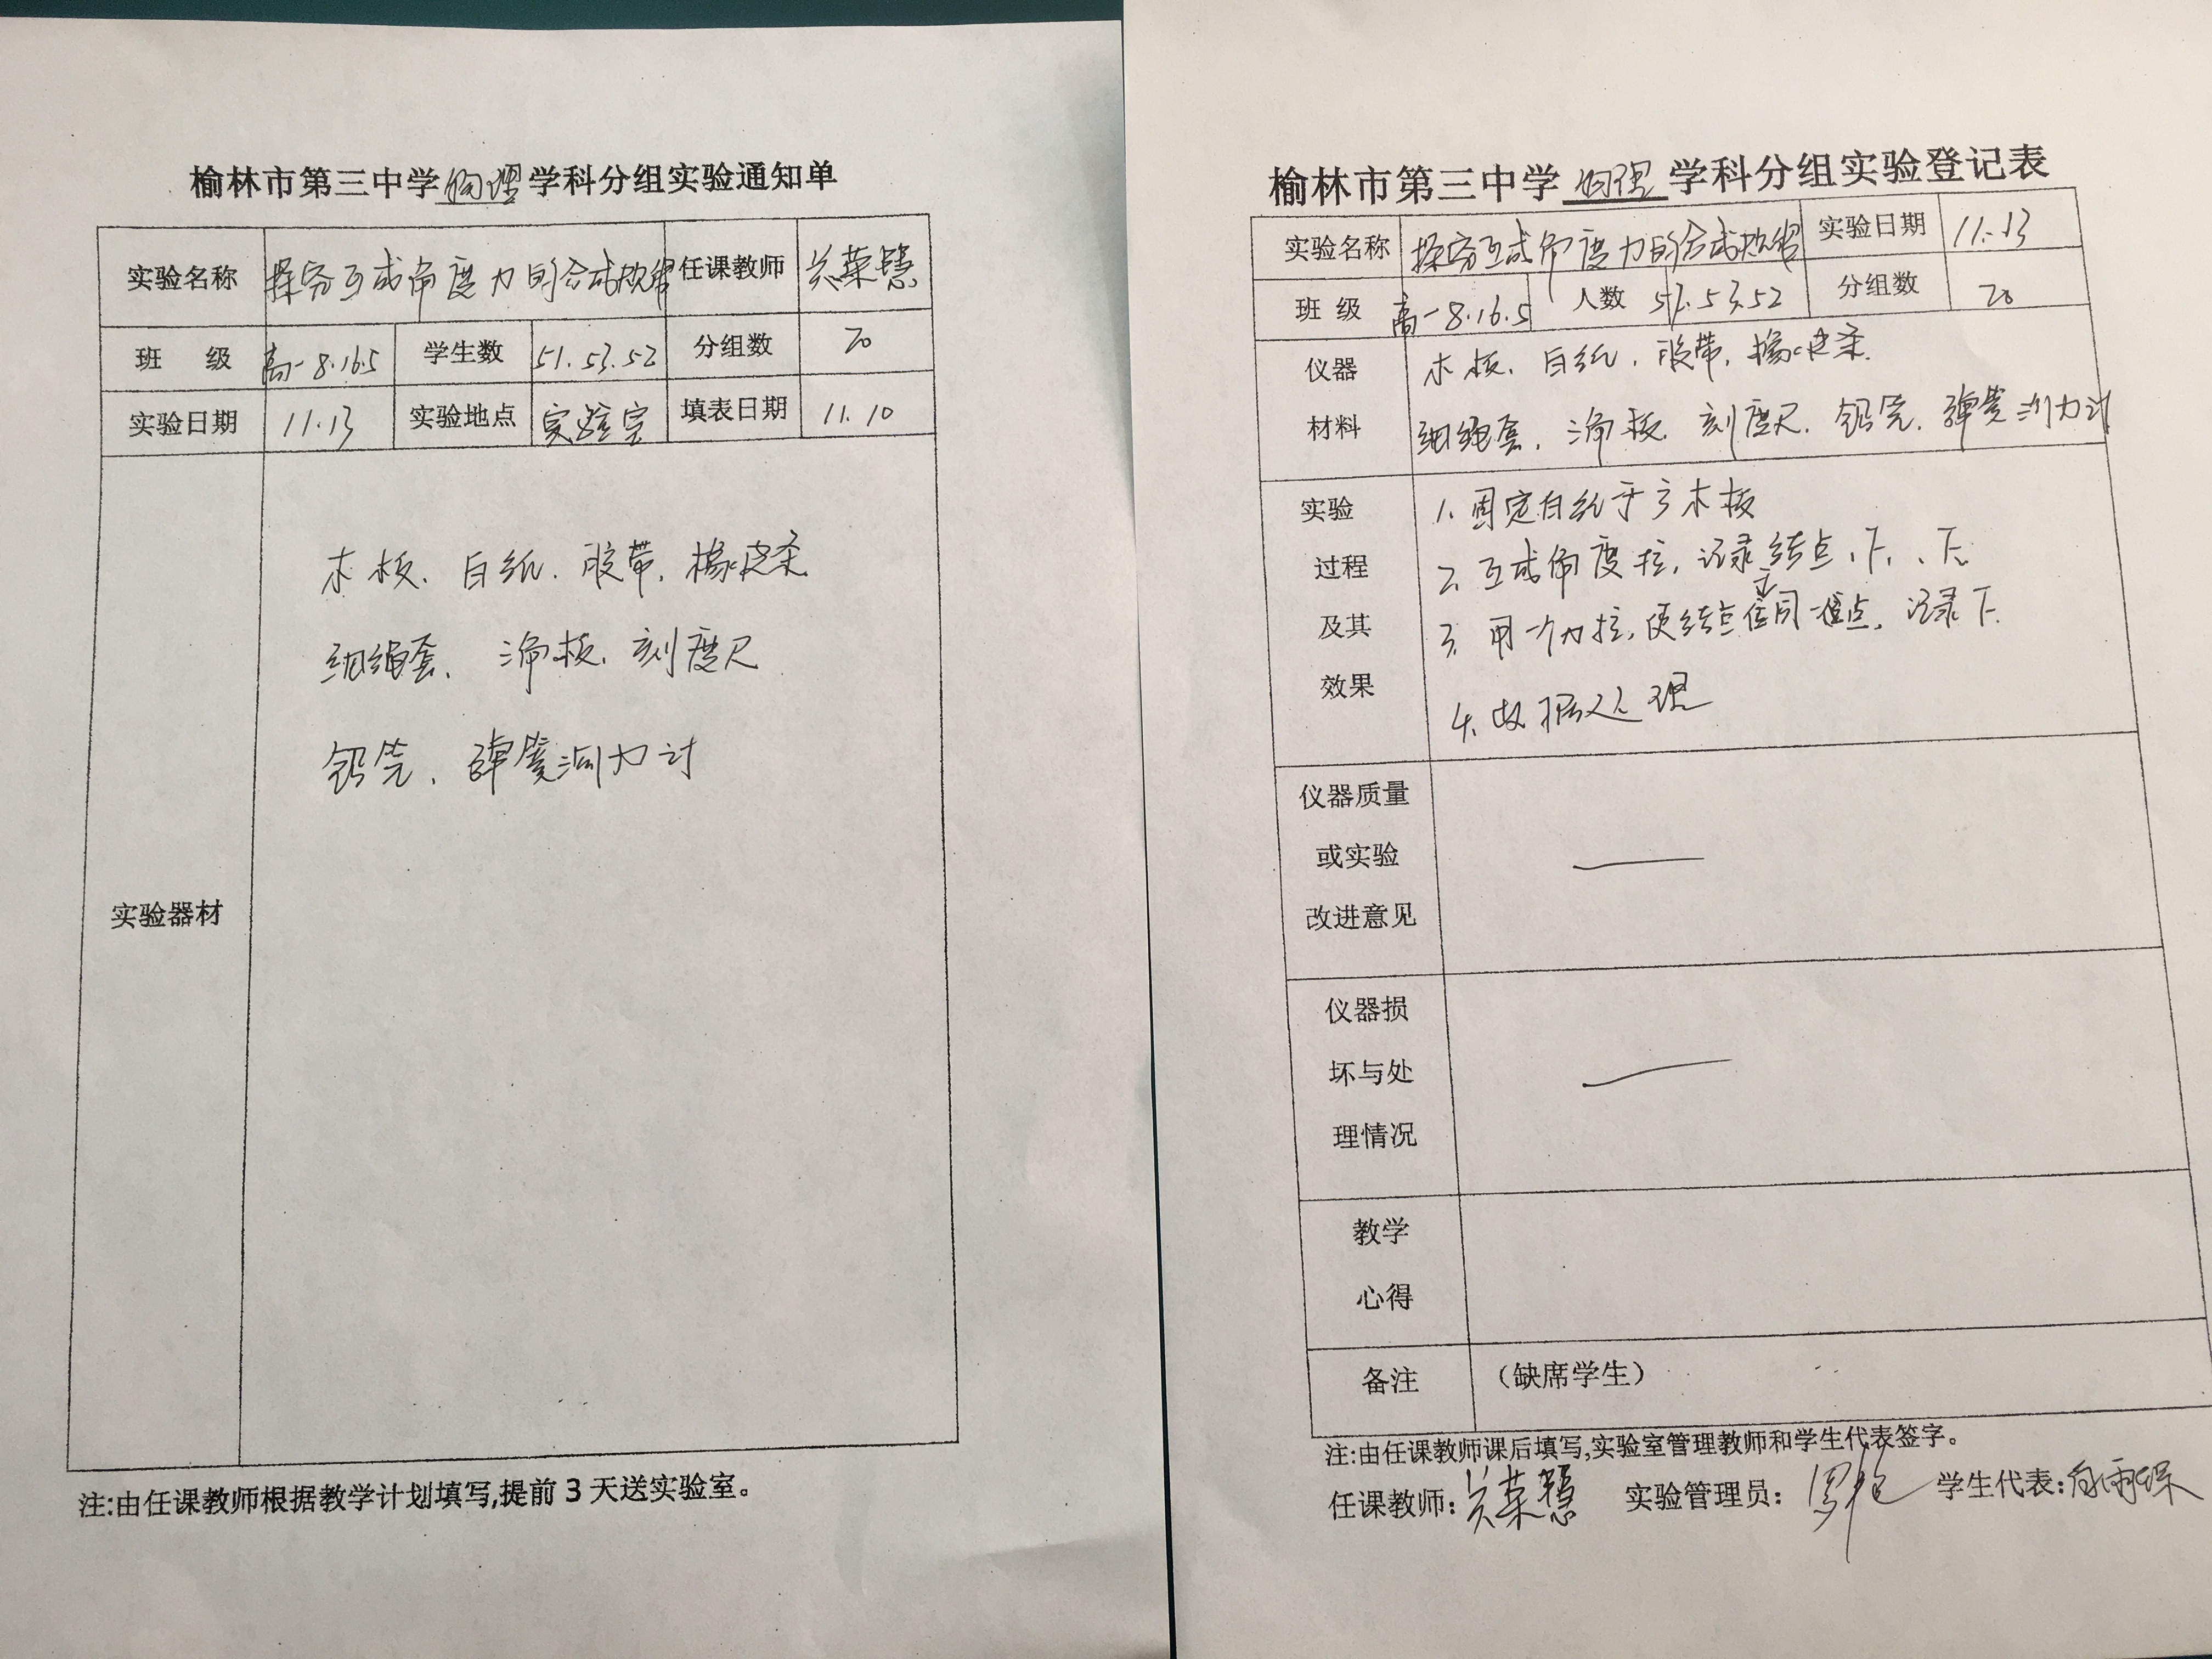 榆林市第三中学物理学科分组实验通知单
实验名称 探究互成角度力的合成规律 任课教师 关荣慧
班 级 高一8.16.5 学生数 51.53.52 分组数 20
实验日期 11.13 实验地点 实验室 填表日期 11.10
实验器材
木板、白纸、胶带、橡皮条
细绳套、三角板、刻度尺
铅笔、弹簧测力计
注:由任课教师根据教学计划填写,提前3天送实验室。
榆林市第三中学物理学科分组实验登记表
实验名称 探究互成角度力的合成规律 实验日期 11.13
班 级 高一8.16.5 人数 51.53.52 分组数 20
仪器 木板、白纸、胶带、橡皮条
材料 细绳套、三角板、刻度尺、铅笔、弹簧测力计
实验 1、固定白纸于木板
过程 2、互成角度拉,记录结点、F₁、F₂
及其 3、用一个力拉,使结点至同一位点,记录F
效果 4、数据处理
仪器质量
或实验 —
改进意见
仪器损
坏与处 —
理情况
教学
心得
备注 (缺席学生)
注:由任课教师课后填写,实验室管理教师和学生代表签字。
任课教师: 关荣慧 实验管理员: 学生代表: